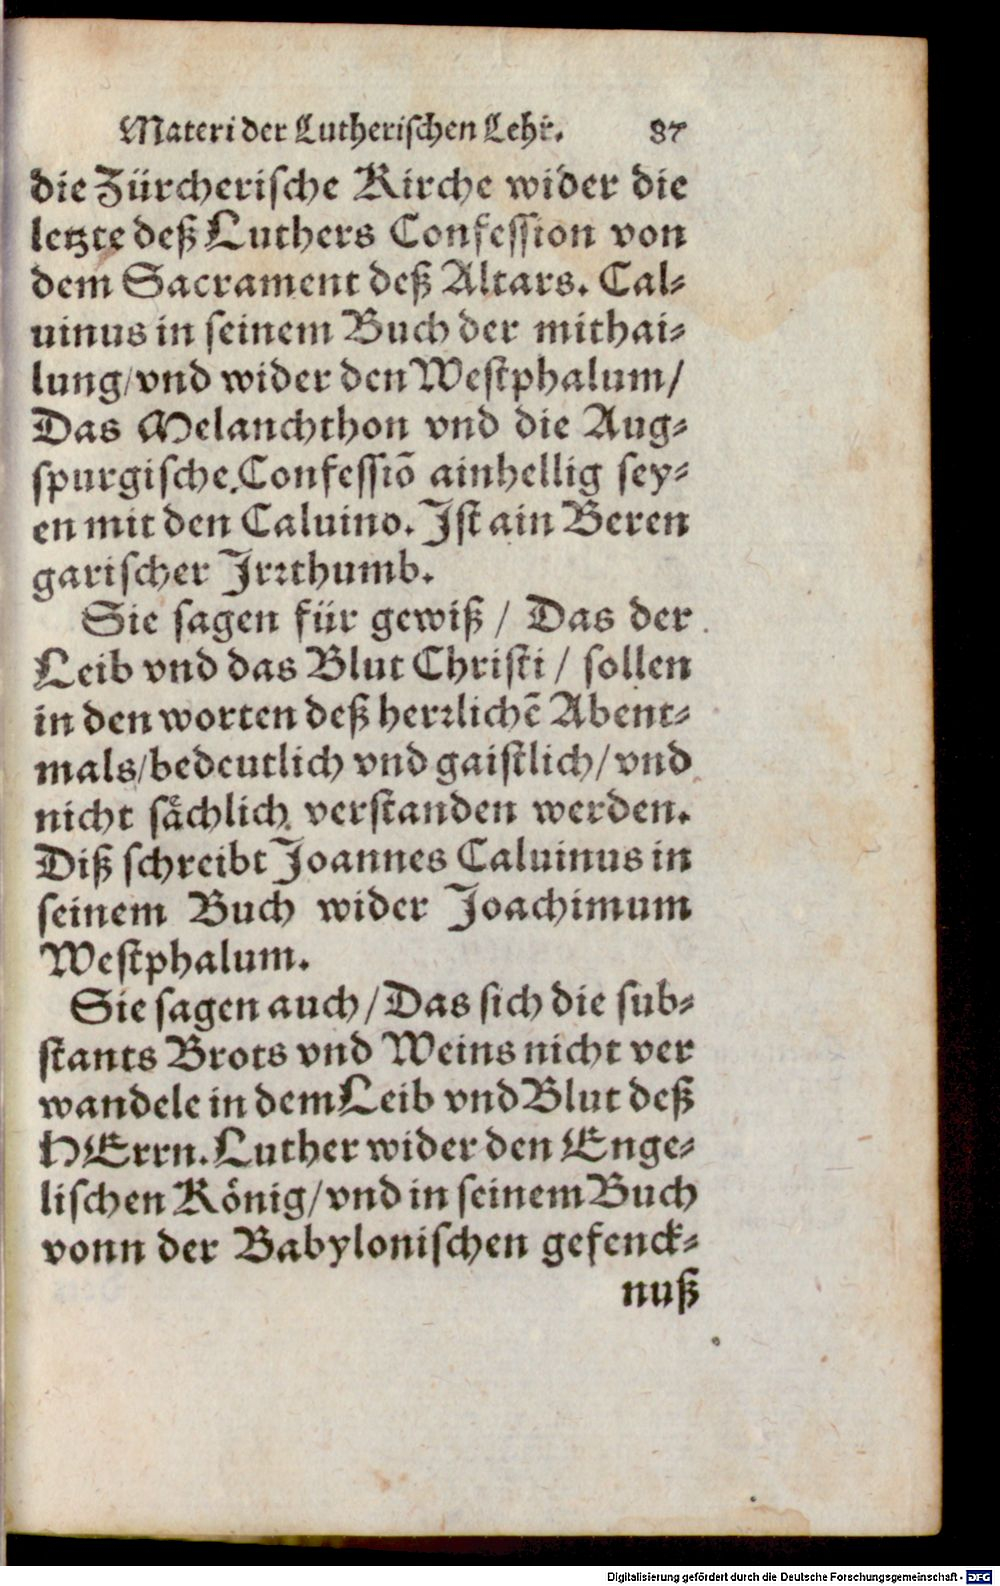 Materi der Lutherischen Lehr. 87
die Zürcherische Kirche wider die
letzte deß Luthers Confession von
dem Sacrament deß Altars. Cal⸗
uinus in seinem Buch der mithai⸗
lung/vnd wider den Westphalum/
Das Melanchthon vnd die Aug⸗
spurgische Confessiõ ainhellig sey⸗
en mit den Caluino. Ist ain Beren
garischer Irꝛthumb.
Sie sagen für gewiß / Das der
Leib vnd das Blut Christi / sollen
in den worten deß herꝛlichẽ Abent⸗
mals/bedeutlich vnd gaistlich/vnd
nicht sächlich verstanden werden.
Diß schreibt Joannes Caluinus in
seinem Buch wider Joachimum
Westphalum.
Sie sagen auch/Das sich die sub⸗
stants Brots vnd Weins nicht ver
wandele in dem Leib vnd Blut deß
HErrn. Luther wider den Enge⸗
lischen König/vnd in seinem Buch
vonn der Babylonischen gefenck⸗
nuß
Digitalisierung gefördert durch die Deutsche Forschungsgemeinschaft - DFG